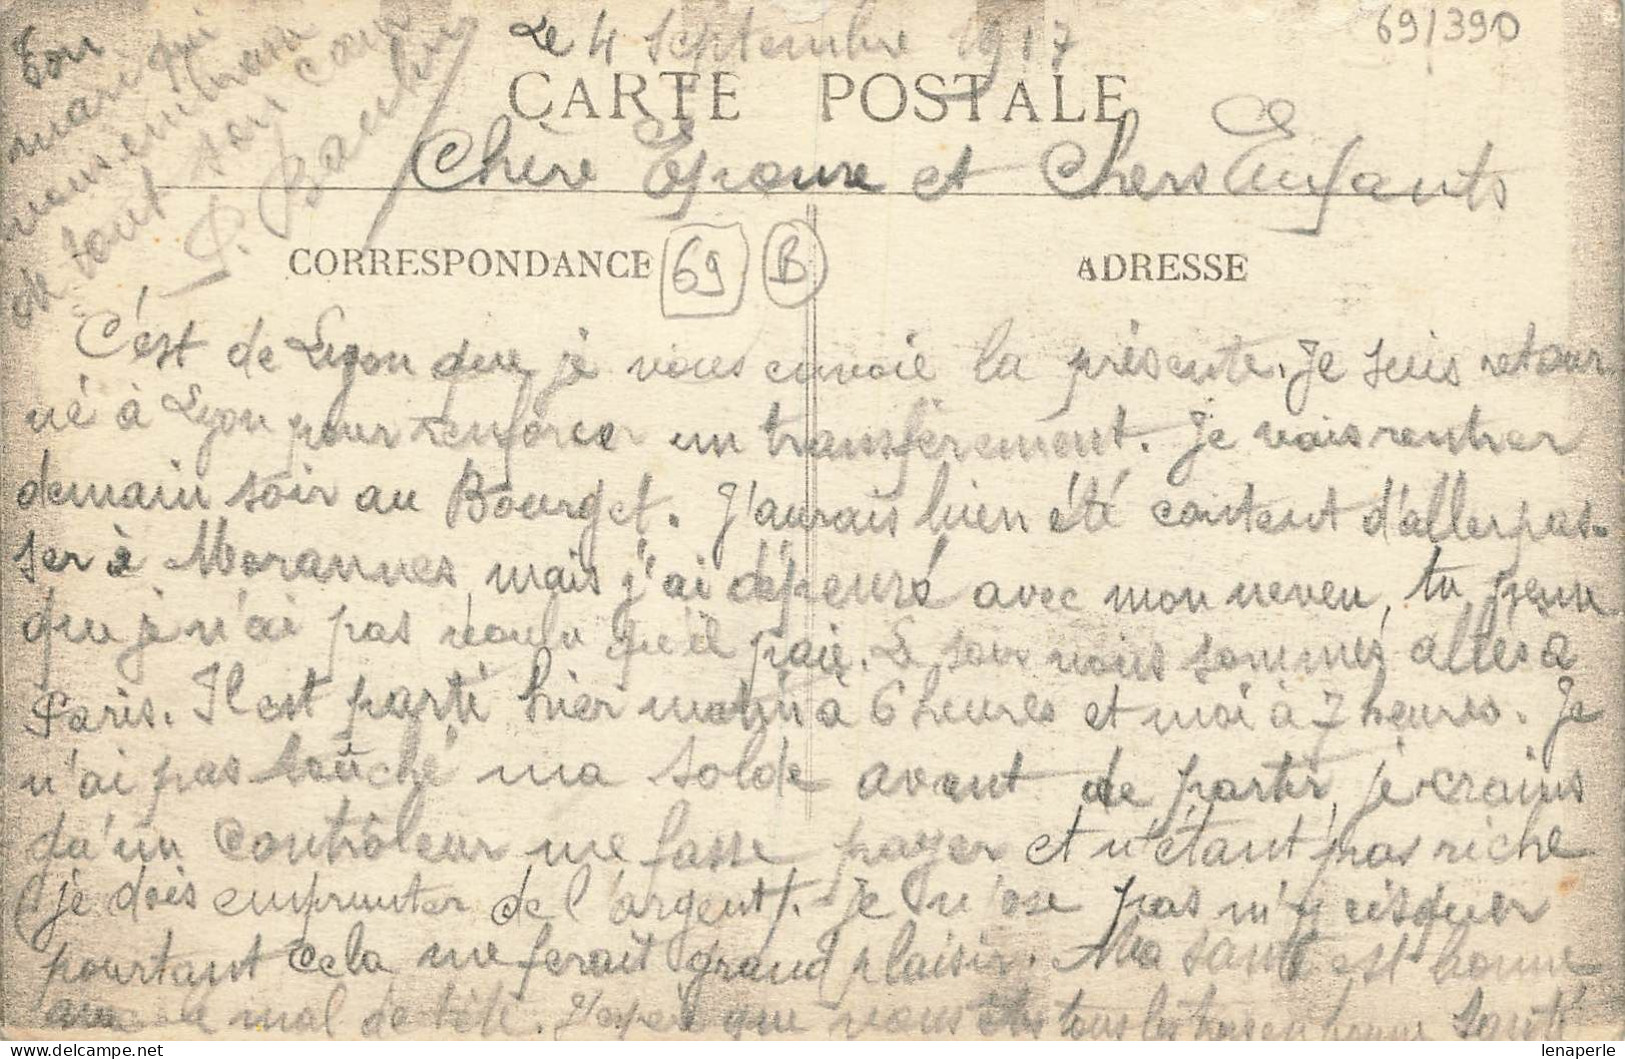 69/390
Le 4 Septembre 1917
CARTE POSTALE
Chère Epouse et Chers Enfants
CORRESPONDANCE
69
B
ADRESSE
C'est de Lyon que je vous envoie la présente. Je suis retour
né à Lyon pour renforcer un transfèrement. Je vais rentrer
demain soir au Bourget. J'aurais bien été content d'aller pas-
ser à Morannes, mais j'ai dépensé avec mon neveu, tu penses
que je n'ai pas voulu qu'il paie. Le soir nous sommes allés à
Paris. Il est parti hier matin à 6 heures et moi à 7 heures. Je
n'ai pas touché ma solde avant de partir, je crains
qu'un contrôleur me fasse payer et n'étant pas riche
(je dois emprunter de l'argent). Je n'ose pas m'y risquer
pourtant cela me ferait grand plaisir. Ma santé est bonne
mal de tête. J'espère que vous êtes tous les trois en bonne santé
Ton
mari qui
vous embrasse
de tout son cœur